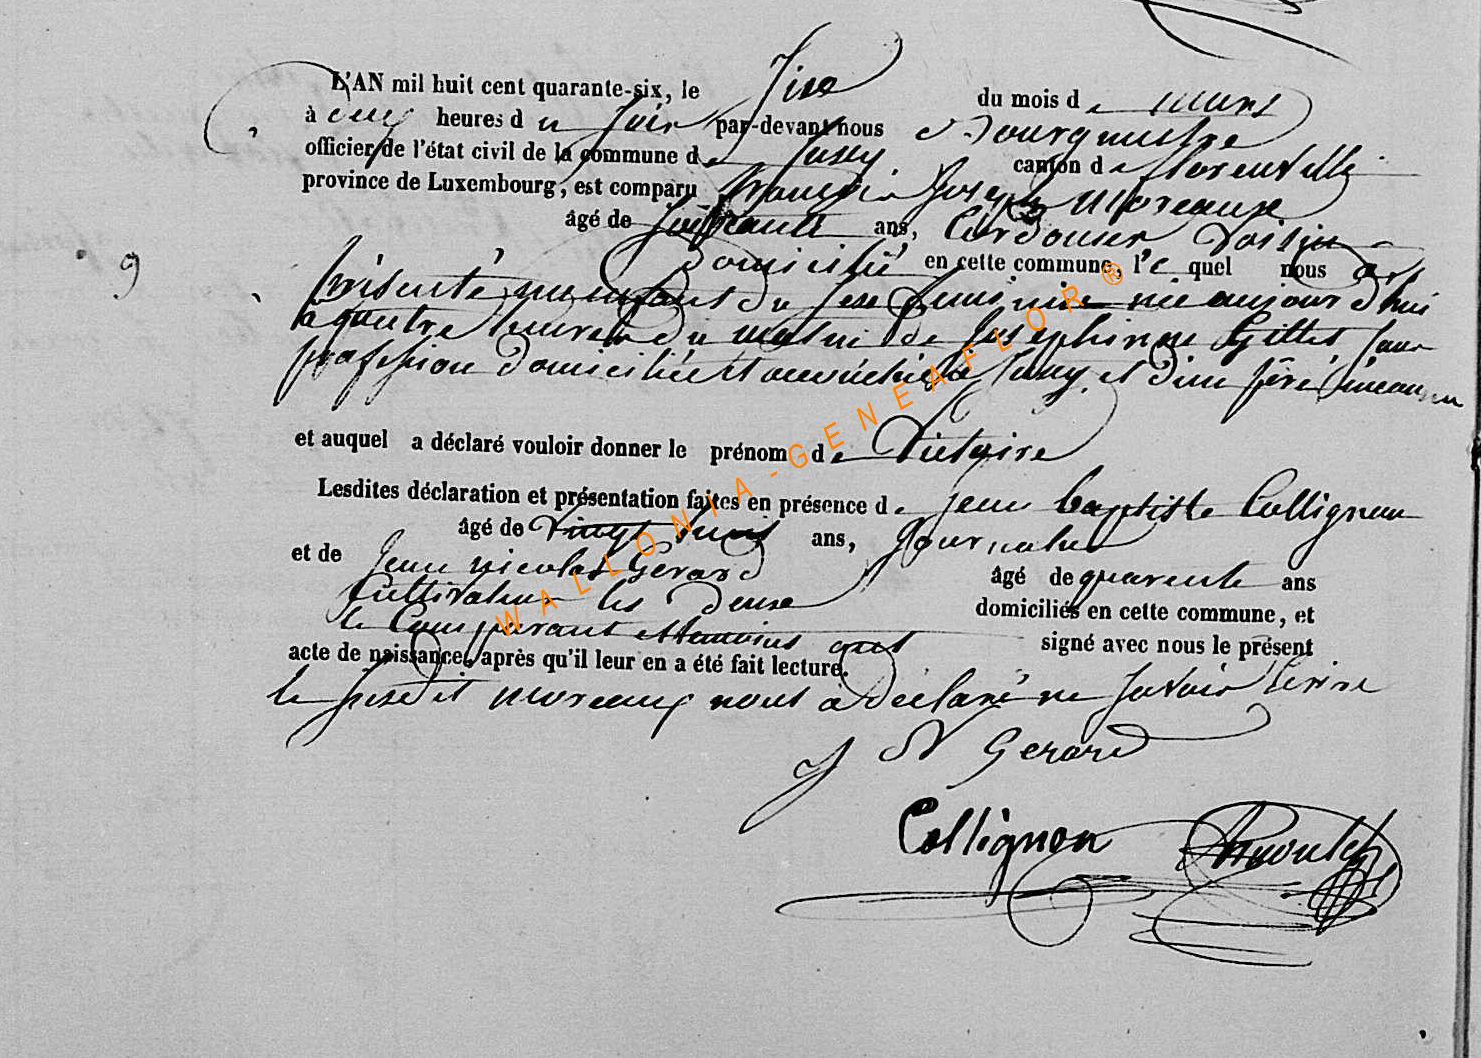 L'AN mil huit cent quarante-six, le Six du mois de mars
à cinq heures du Soir par-devant nous Bourgmestre
officier de l'état civil de la commune de canton de florenville
province de Luxembourg, est comparu françois Joseph Moreaux
âgé de ans, Cordonier
domicilié en cette commune, lequel nous a
9
présenté un enfant du sexe feminine née aujourd'hui
à quatre heures du matin de Josephinne Gillet sans
profession domiciliée et accouchée à et d'un père inconnu
et auquel a déclaré vouloir donner le prénom de Victoire
Lesdites déclaration et présentation faites en présence de jean baptiste Collignon
âgé de vingt ans, Journalier
et de Jean nicolas Gerard âgé de quarente ans
Cultivateur les deux domiciliés en cette commune, et
le Comparant et temoins ont signé avec nous le présent
acte de naissance, après qu'il leur en a été fait lecture.
le susdit moreaux nous a declaré ne savoir écrire
J N Gerard
Collignon
WALLONIA-GENEAFLOR®